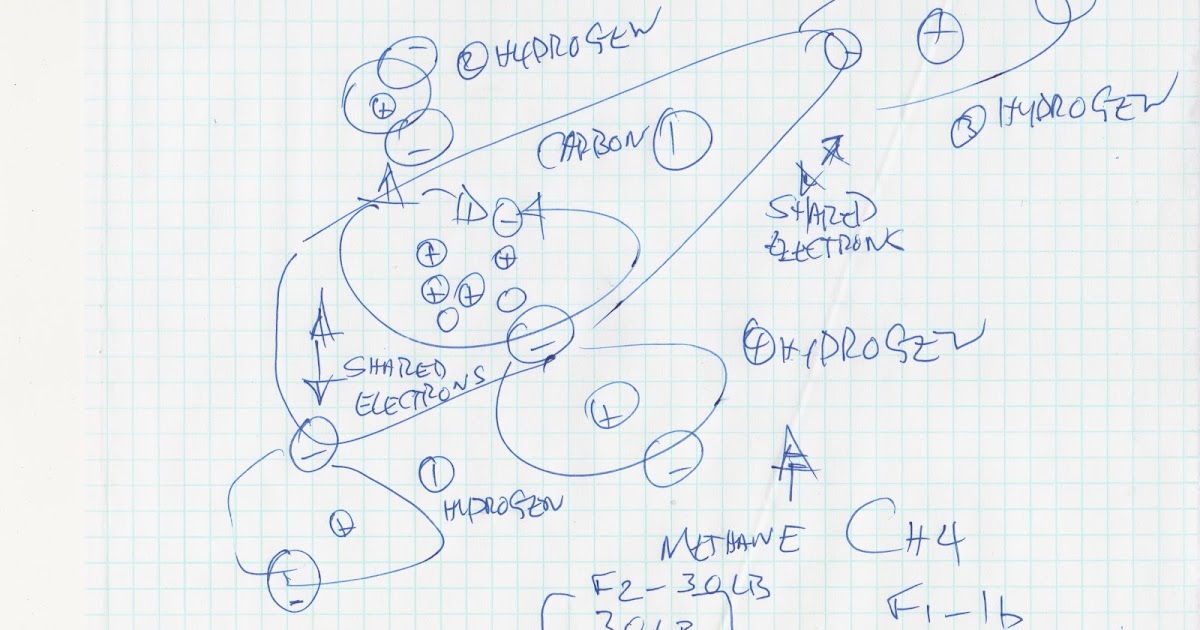 ② HYDROGEN
③ HYDROGEN
CARBON ①
SHARED
ELECTRONS
④ HYDROGEN
SHARED
ELECTRONS
① HYDROGEN
METHANE CH4
F2-30LB
F1-1b
30LB